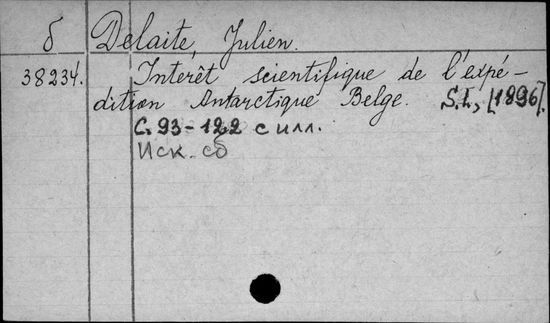 б Delaite, Julien.
38234. Interêt scientifique de l'expé-
dition Antarctique Belge. S.l., [1896].
С. 93-122 с илл.
Иск. сб